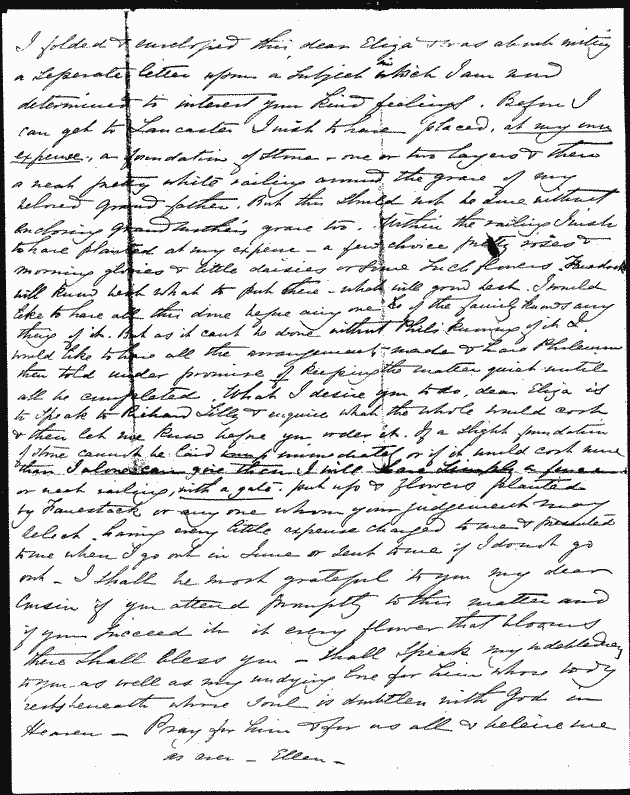 I folded & enveloped this, dear Eliza & was about writing
a Seperate letter upon a Subject in which I am and
determined to interest your kind feelings. Before I
can get to Lancaster I wish to have placed, at my own
expense, a foundation of Stone - one or two layers & then
a neat pretty white railing around the grave of my
beloved Grand father. But this Should not be done without
Enclosing grandmother's grave too. Within the railing I wish
to have planted at my expense - a few choice pretty roses &
morning glories & little daisies or Some Such flowers.
will know best what to put there - what will grow best. I would
like to have all this done before any one of the family knows any
thing of it. But as it can't be done without Phil: knowing of it I
would like to have all the arrangements made & have Philemon
then told under promise of keeping the matter quiet until
all be completed. What I desire you to do, dear Eliza is
to Speak to Richard & enquire what the whole would cost
& then let me know before you order it. If a Slight foundation
of Stone cannot be laid immediately or if it would cost more
than I alone can give then I will have Simply a fence
or neat railing, with a gate, put up & flowers planted
by or any one whom your judgement may
Select - having every little expense charged to me & presented
to me when I go out in June or Sent to me if I do not go
out - I Shall be most grateful to you my dear
Cousin if you attend promptly to this matter and
if you Succeed in it every flower that blooms
there Shall bless you - Shall Speak my indebtedness
to you as well as my undying love for him whose body
rests beneath whose Soul is doubtless with God in
Heaven - Pray for him & for us all & beleive me
as ever - Ellen -